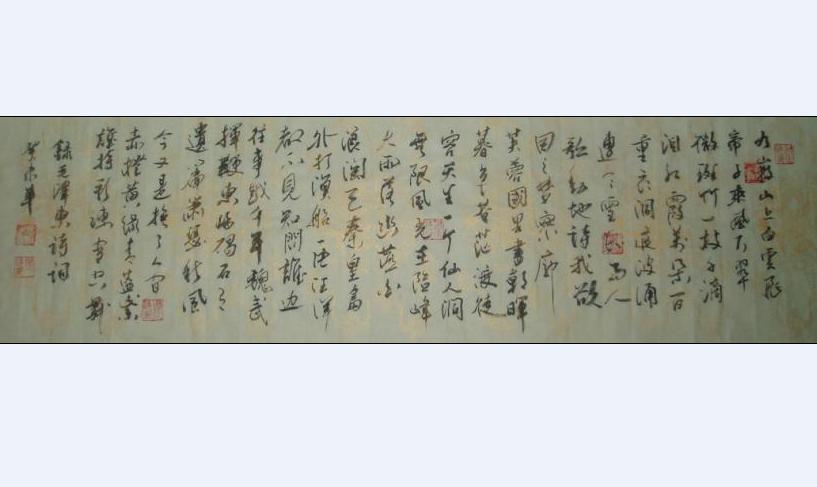 九嶷山上白雲飛
帝子乘風下翠
微斑竹一枝千滴
淚紅霞萬朵百
重衣洞庭波涌
連天雪長島人
歌動地詩我欲
因之夢寥廓
芙蓉國里盡朝暉
暮色蒼茫渡從
容天生一个仙人洞
無限風光在險峰
大雨落幽燕白
浪滔天秦皇島
外打漁船一片汪洋
都不見知向誰邊
往事越千年魏武
揮鞭東臨碣石有
遺篇蕭瑟秋風
今又是換了人間
赤橙黃綠青藍紫
誰持彩練當空舞
錄毛澤東詩詞
癸未年